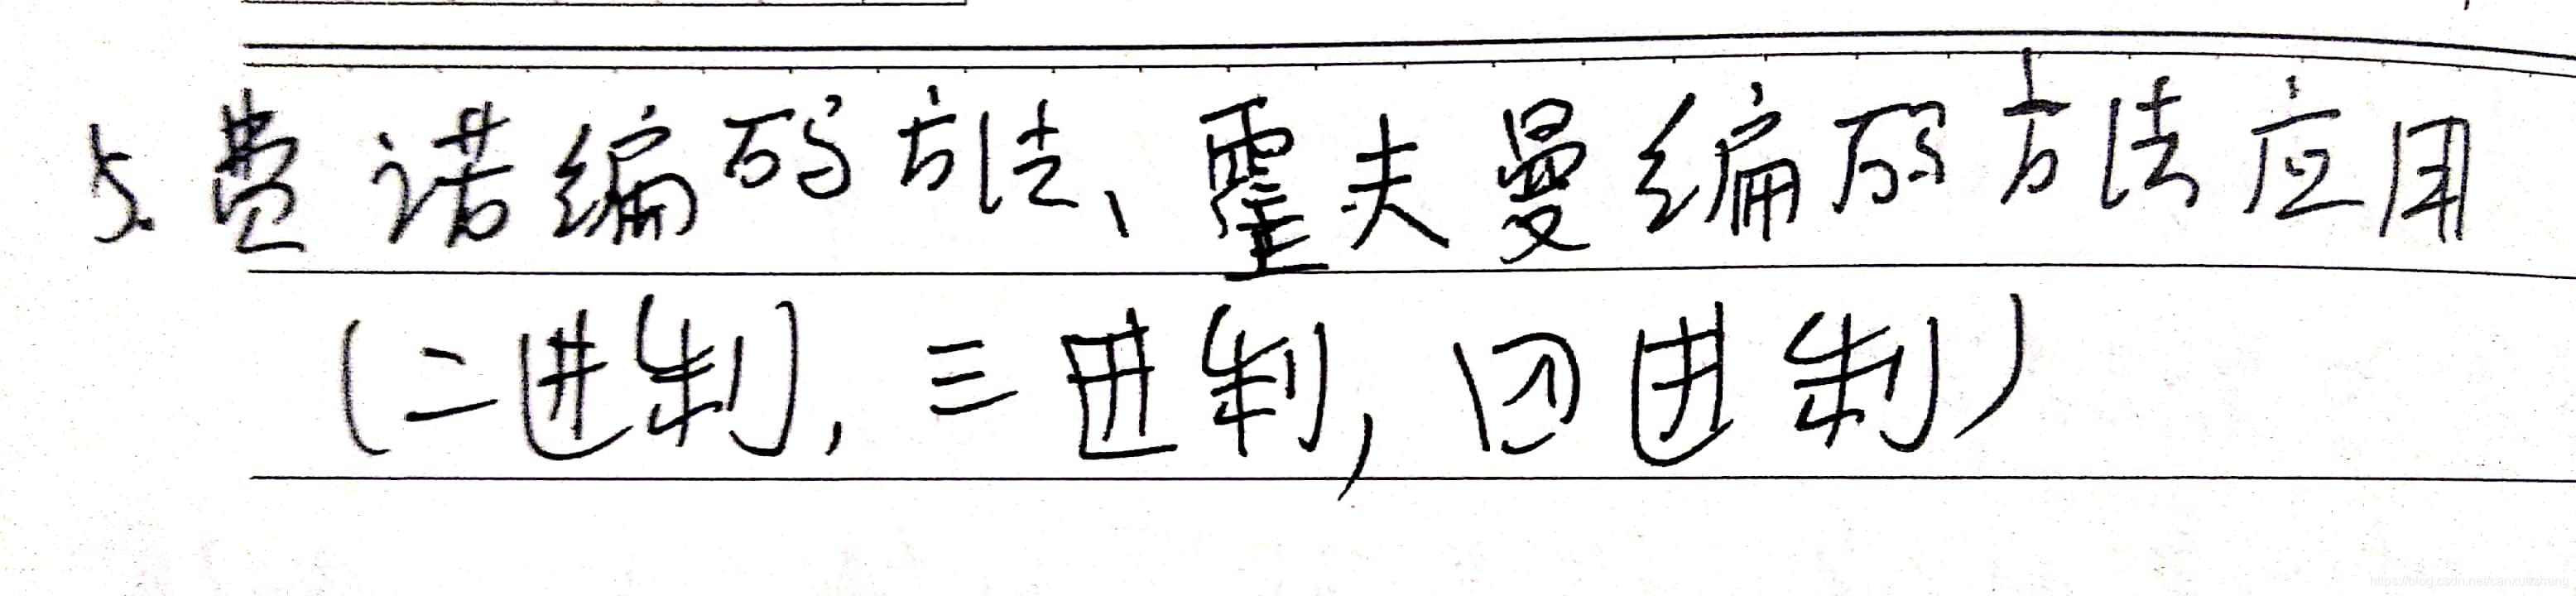 5.费诺编码方法、霍夫曼编码方法应用
(二进制),三进制,四进制)
https://blog.csdn.net/canxuezhang